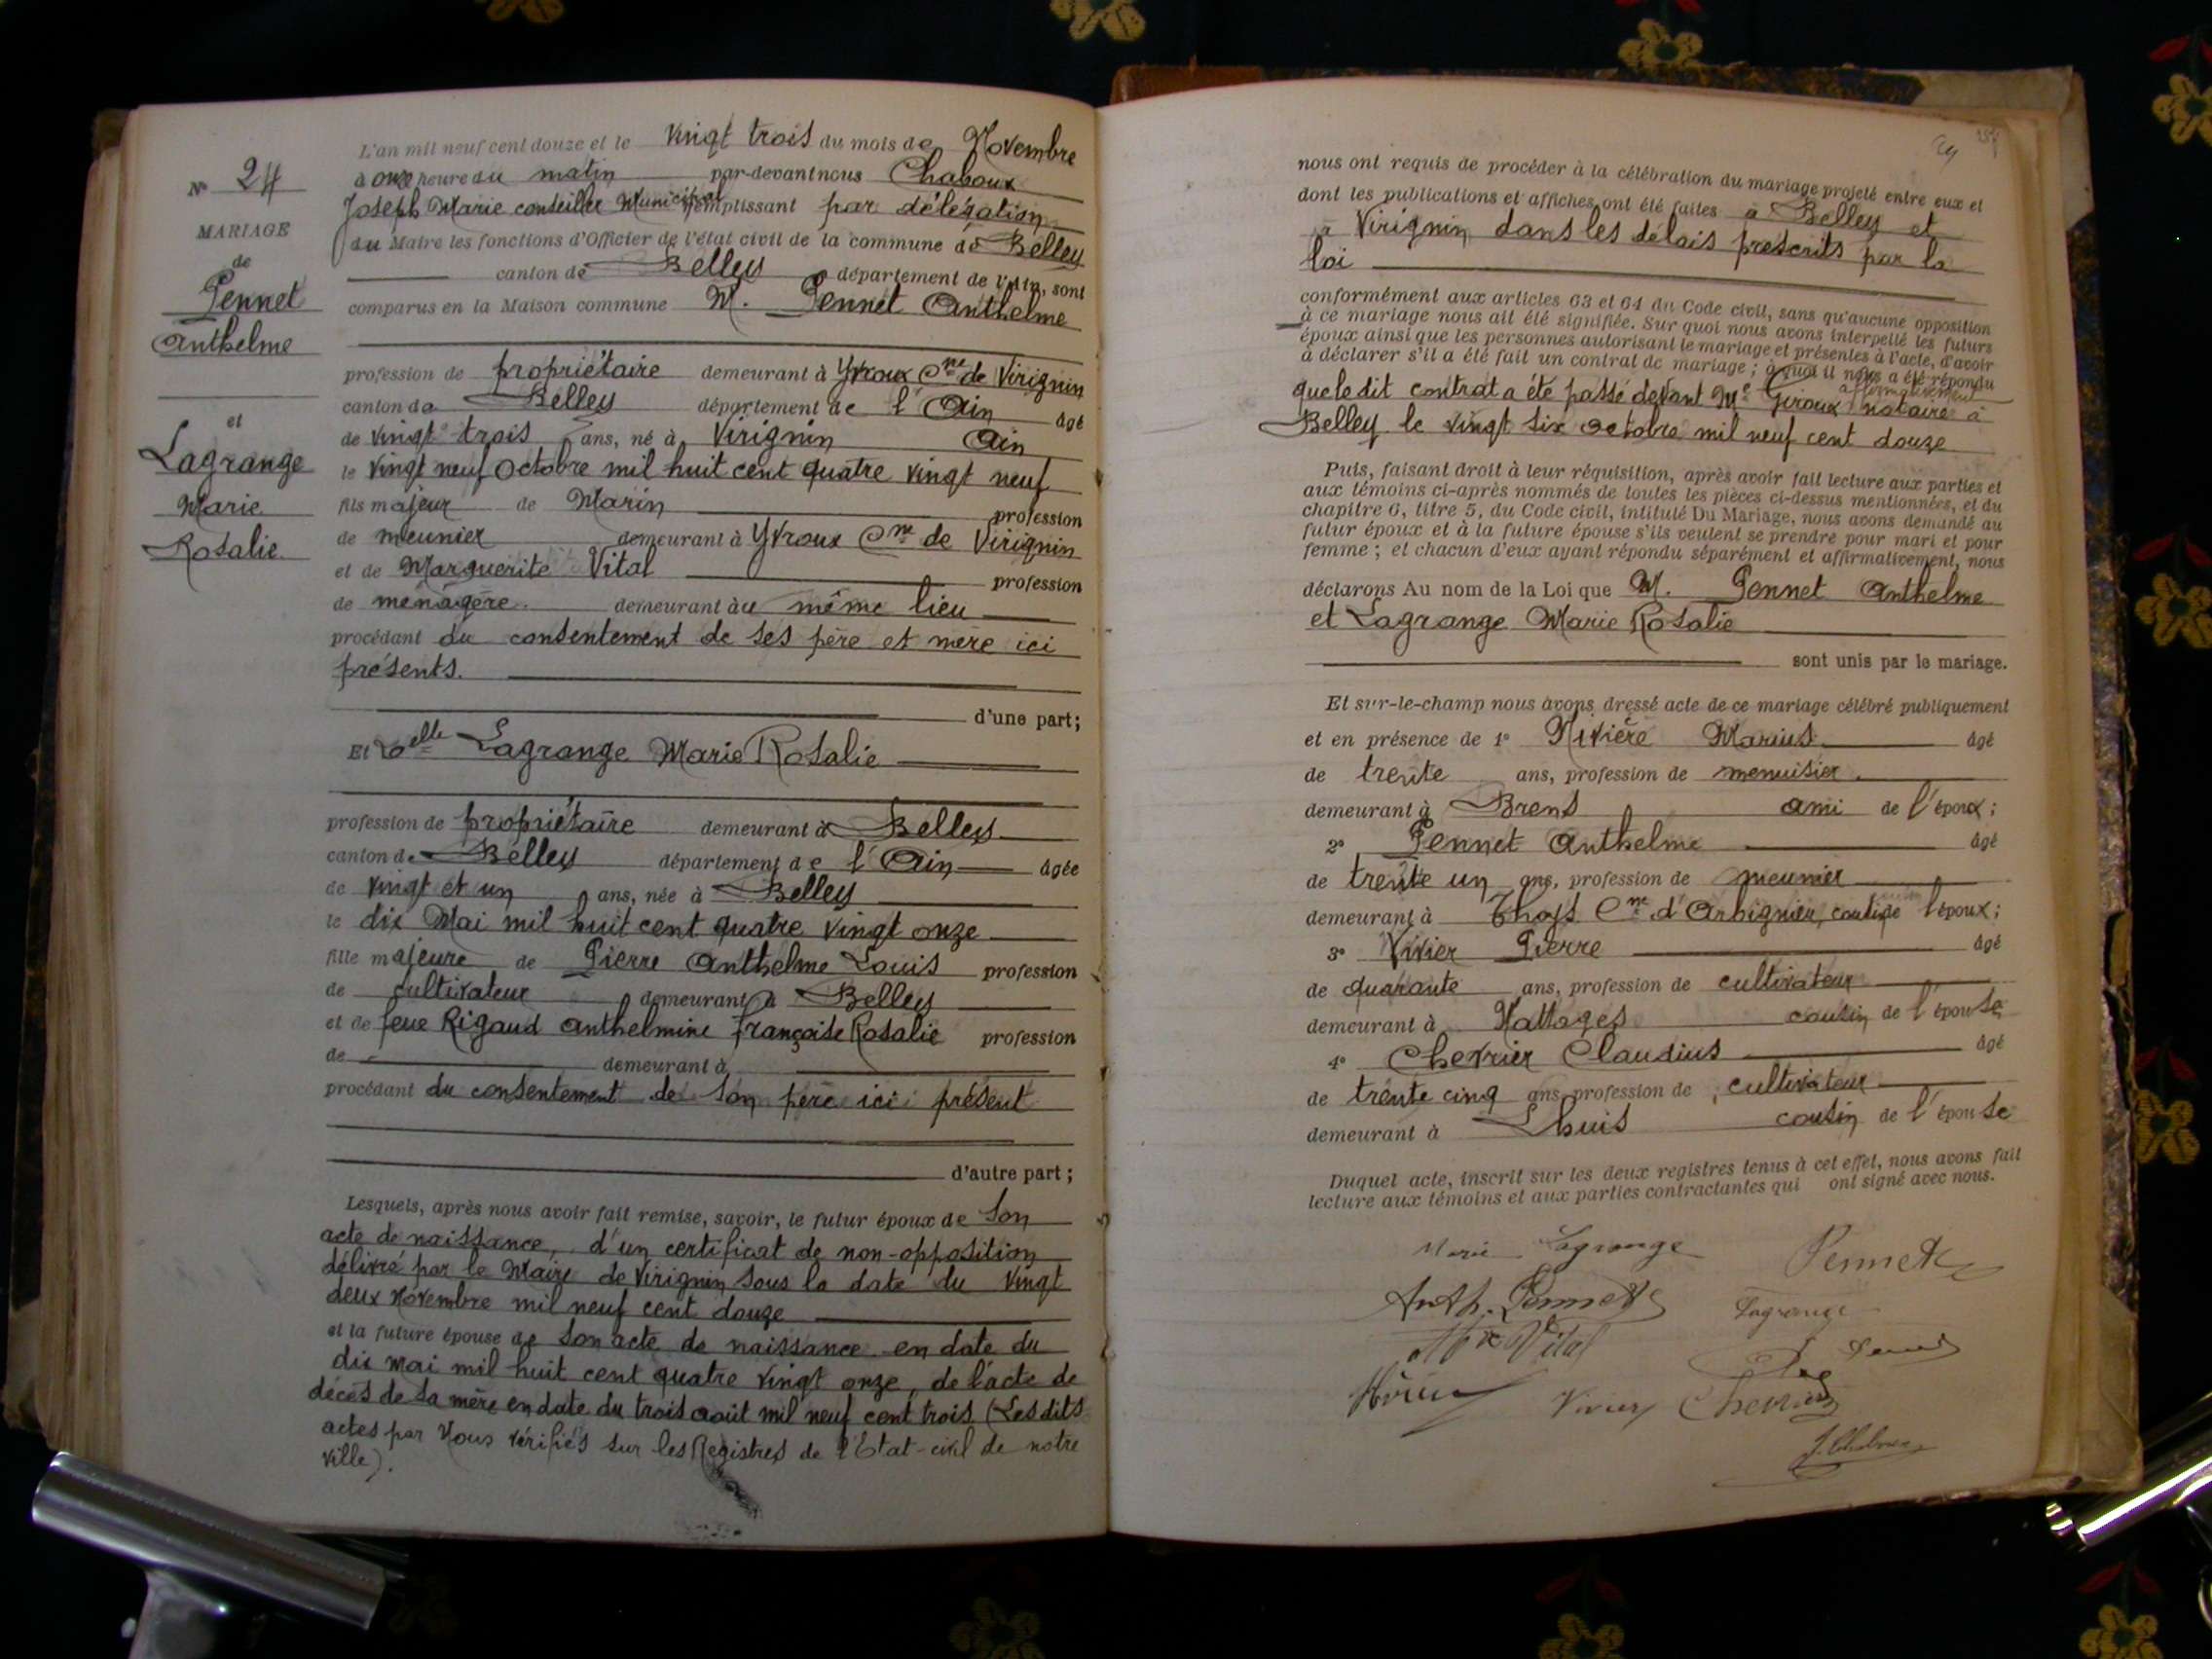 N° 24
MARIAGE
de
Pennet
Anthelme
et
Lagrange
Marie
Rosalie
L'an mil neuf cent douze et le vingt trois du mois de Novembre
à onze heure du matin par-devant nous Chaboux
Joseph Marie conseiller Municipal remplissant par délégation
du Maire les fonctions d'Officier de l'état civil de la commune de Belley
canton de Belley département de l'Ain, sont
comparus en la Maison commune M. Pennet Anthelme
profession de propriétaire demeurant à Yvroux Cne de Virignin
canton de Belley département de l'Ain âgé
de vingt trois ans, né à Virignin Ain
le vingt neuf Octobre mil huit cent quatre vingt neuf
fils majeur de Marin profession
de meunier demeurant à Yvroux Cne de Virignin
et de Marguerite Vital profession
de ménagère demeurant au même lieu
procédant du consentement de ses père et mère ici
présents.
d'une part;
Et Delle Lagrange Marie Rosalie
profession de propriétaire demeurant à Belley
canton de Belley département de l'Ain âgée
de vingt et un ans, née à Belley
le dix Mai mil huit cent quatre vingt onze
fille majeure de Pierre Anthelme Louis profession
de cultivateur demeurant à Belley
et de feue Rigaud Anthelmine Françoise Rosalie profession
de demeurant à
procédant du consentement de son père ici présent
d'autre part;
Lesquels, après nous avoir fait remise, savoir, le futur époux de son
acte de naissance, d'un certificat de non-opposition
délivré par le Maire de Virignin sous la date du vingt
deux Novembre mil neuf cent douze
et la future épouse de son acte de naissance en date du
dix mai mil huit cent quatre vingt onze, de l'acte de
décès de sa mère en date du trois août mil neuf cent trois (Lesdits
actes par Nous vérifiés sur les Registres de l'Etat-civil de notre
ville).
nous ont requis de procéder à la célébration du mariage projeté entre eux et
dont les publications et affiches ont été faites à Belley et
à Virignin dans les délais prescrits par la
loi
conformément aux articles 63 et 64 du Code civil, sans qu'aucune opposition
à ce mariage nous ait été signifiée. Sur quoi nous avons interpellé les futurs
époux ainsi que les personnes autorisant le mariage et présentes à l'acte, d'avoir
à déclarer s'il a été fait un contrat de mariage; à quoi il nous a été répondu
affirmativement
que le dit contrat a été passé devant Me Giroux notaire à
Belley le vingt six octobre mil neuf cent douze
Puis, faisant droit à leur réquisition, après avoir fait lecture aux parties et
aux témoins ci-après nommés de toutes les pièces ci-dessus mentionnées, et du
chapitre 6, titre 5, du Code civil, intitulé Du Mariage, nous avons demandé au
futur époux et à la future épouse s'ils veulent se prendre pour mari et pour
femme; et chacun d'eux ayant répondu séparément et affirmativement, nous
déclarons Au nom de la Loi que M. Pennet Anthelme
et Lagrange Marie Rosalie
sont unis par le mariage.
Et sur-le-champ nous avons dressé acte de ce mariage célébré publiquement
et en présence de 1° Rivière Marius âgé
de trente ans, profession de menuisier
demeurant à Brens ami de l'époux;
2° Pennet Anthelme âgé
de trente un ans, profession de meunier
demeurant à Thoys Cne d'Arbignieu, cousin de l'époux;
3° Vivier Pierre âgé
de quarante ans, profession de cultivateur
demeurant à Nattages cousin de l'épouse
4° Chevrier Claudius âgé
de trente cinq ans profession de cultivateur
demeurant à Lhuis cousin de l'épouse
Duquel acte, inscrit sur les deux registres tenus à cet effet, nous avons fait
lecture aux témoins et aux parties contractantes qui ont signé avec nous.
Marie Lagrange Pennet
Anth. Pennet Lagrange
Vital
Vivier Chevrier